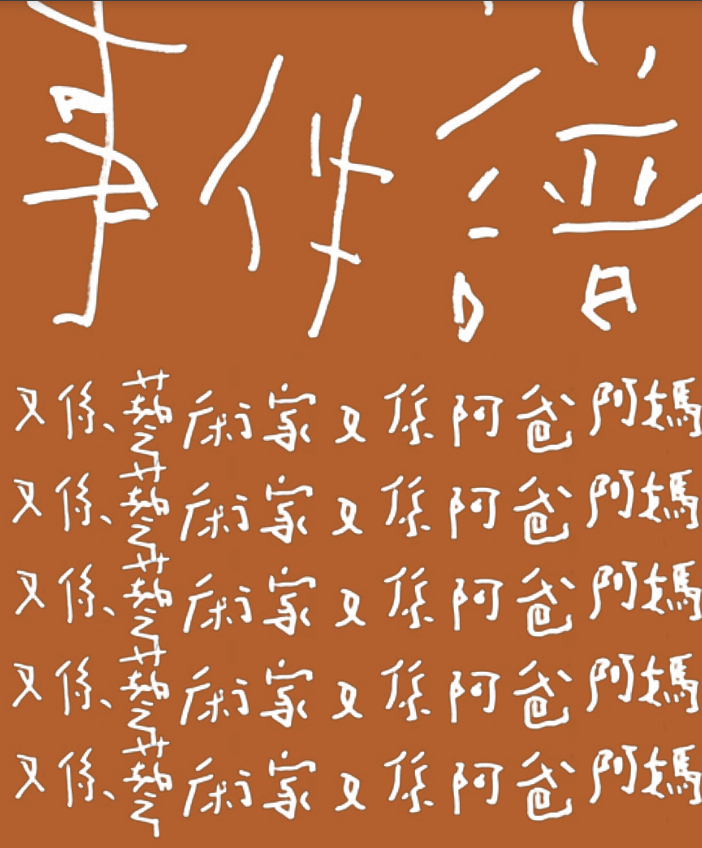 事件譜
又係藝術家又係阿爸阿媽
又係藝術家又係阿爸阿媽
又係藝術家又係阿爸阿媽
又係藝術家又係阿爸阿媽
又係藝術家又係阿爸阿媽